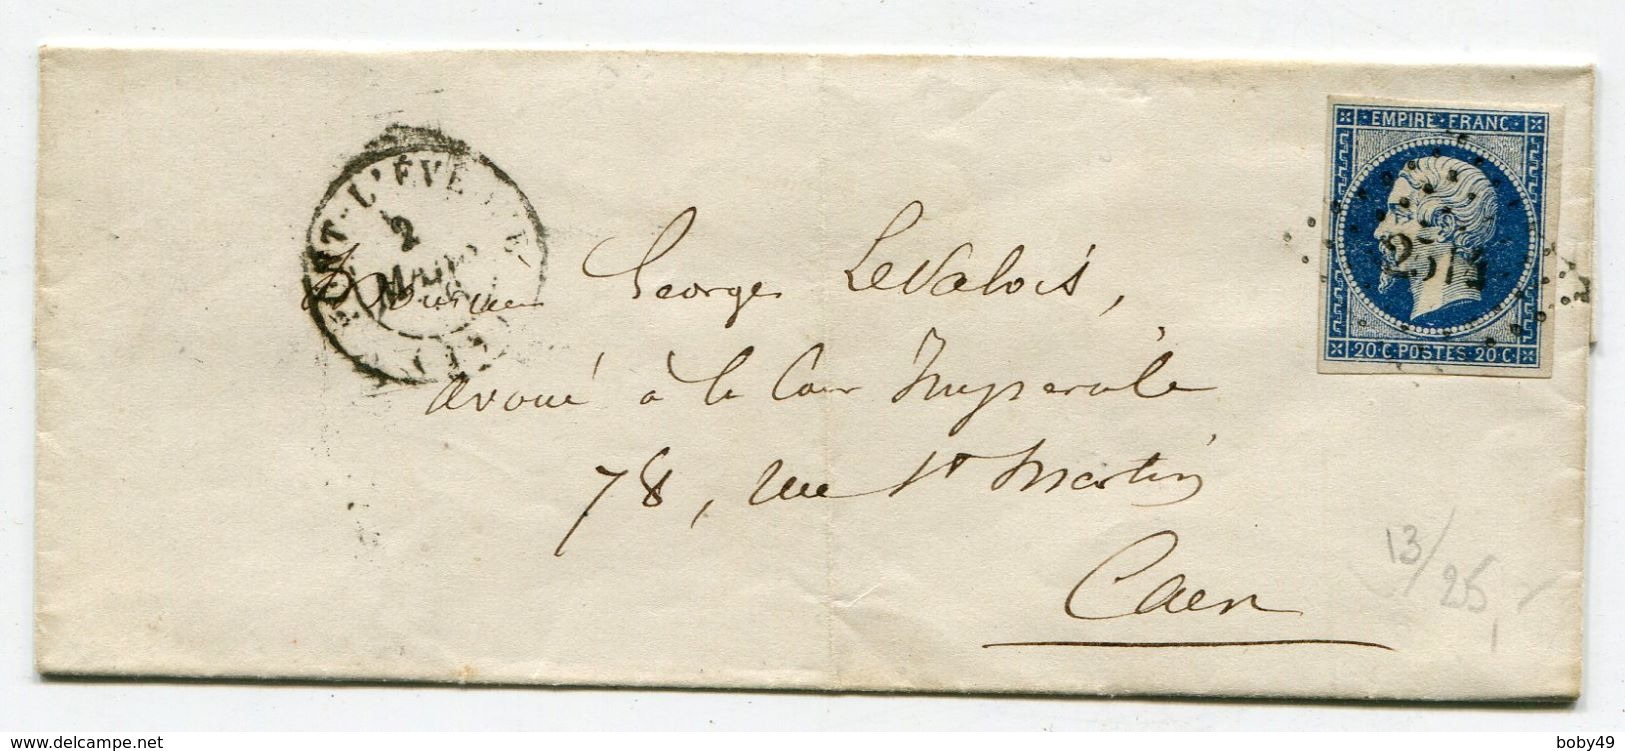 PONT-L'ÉVÊQUE
2
MARS
(13)
EMPIRE · FRANC ·
20·C·POSTES·20·C·
Monsieur Georges LeValois,
avoué à la Cour Impériale
78, rue St Martin
Caen
13/25
delcampe.net
boby49